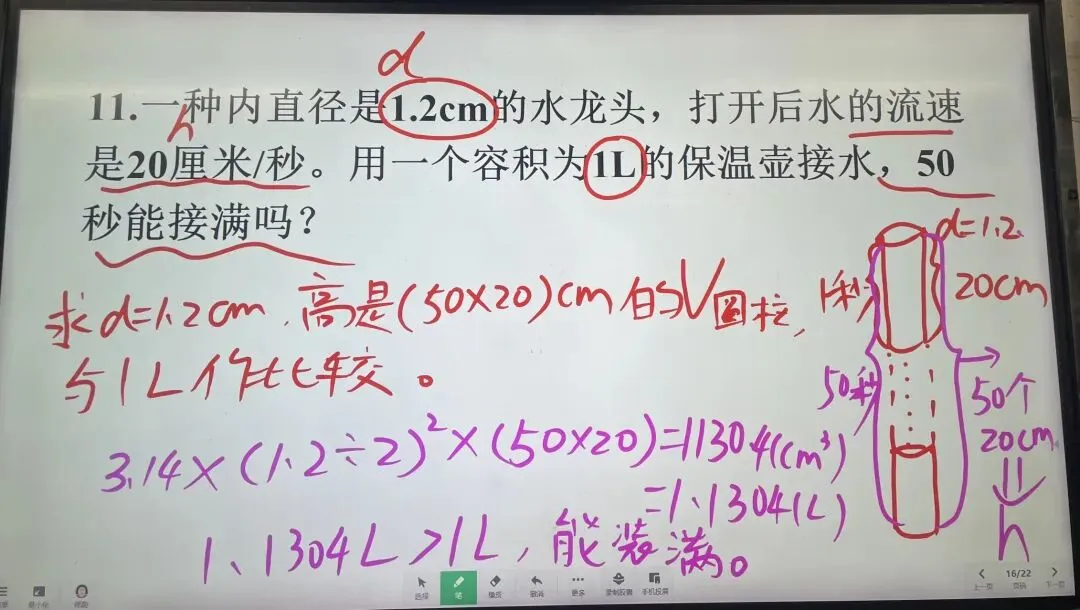 d
11.一种内直径是1.2cm的水龙头，打开后水的流速
h
是20厘米/秒。用一个容积为1L的保温壶接水，50
秒能接满吗？
求d=1.2cm，高是(50×20)cm的V圆柱，
与1L作比较。
3.14×(1.2÷2)²×(50×20)=1130.4(cm³)
=1.1304(L)
1.1304L>1L，能装满。
d=1.2
1秒
20cm
50秒
50个
20cm
h
选择
笔
撤消
更多
手机投屏
上一页
16/22
页码
下一页